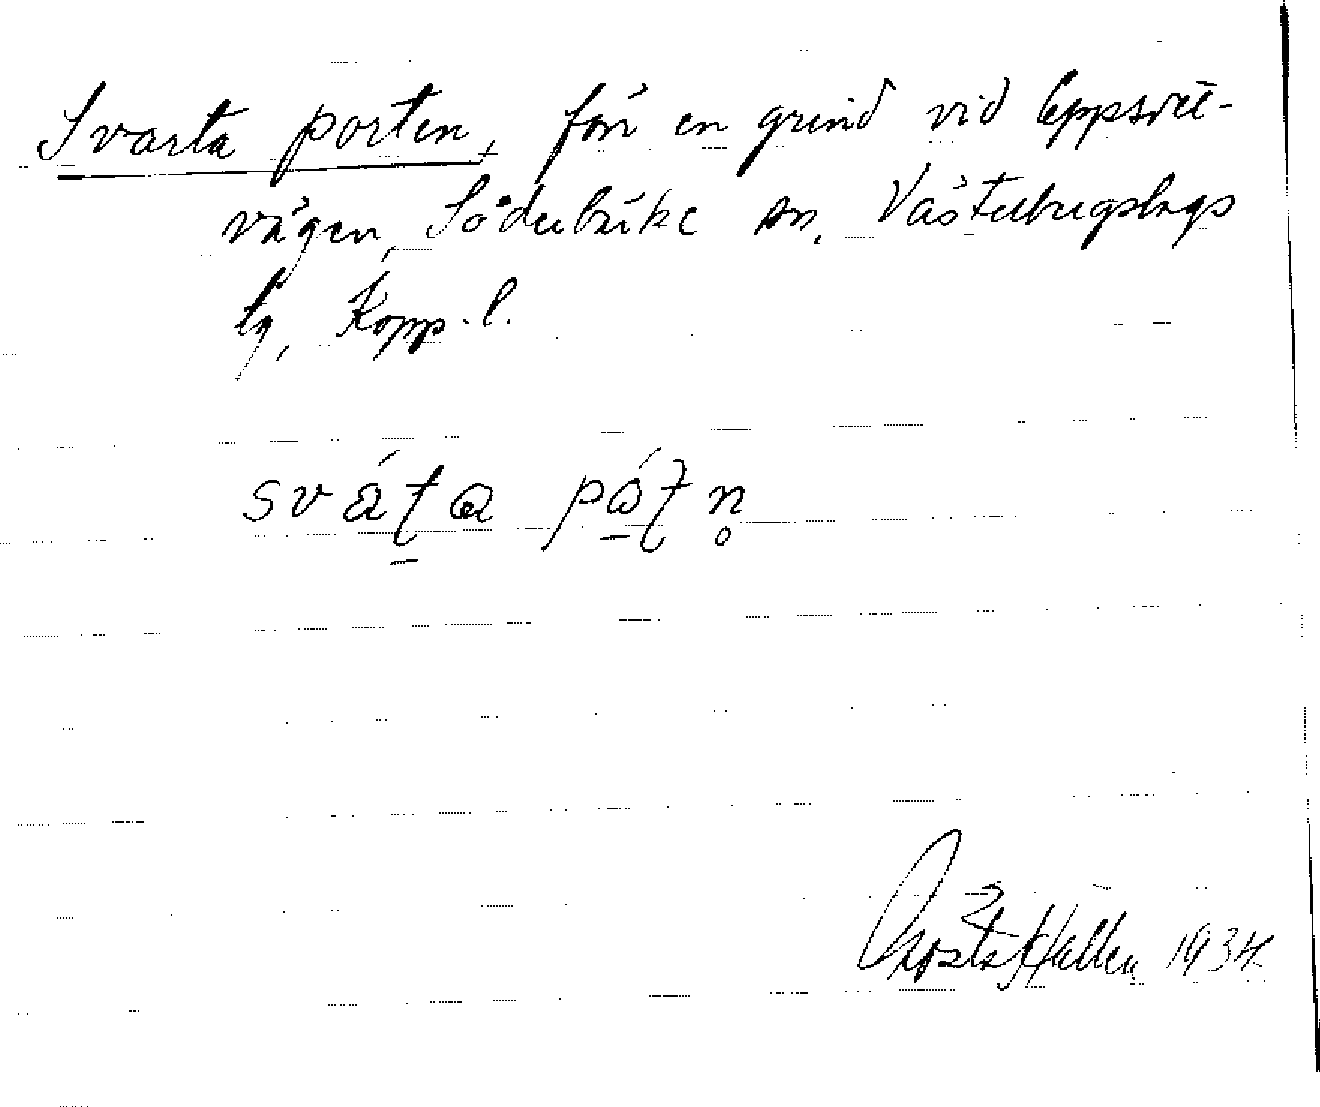 Svarta porten, förr en grind vid Uppsvet-
vägen, Söderbärke sn, Västerbergslags
tg, Kopp. l.
sváta påtn̥
1934